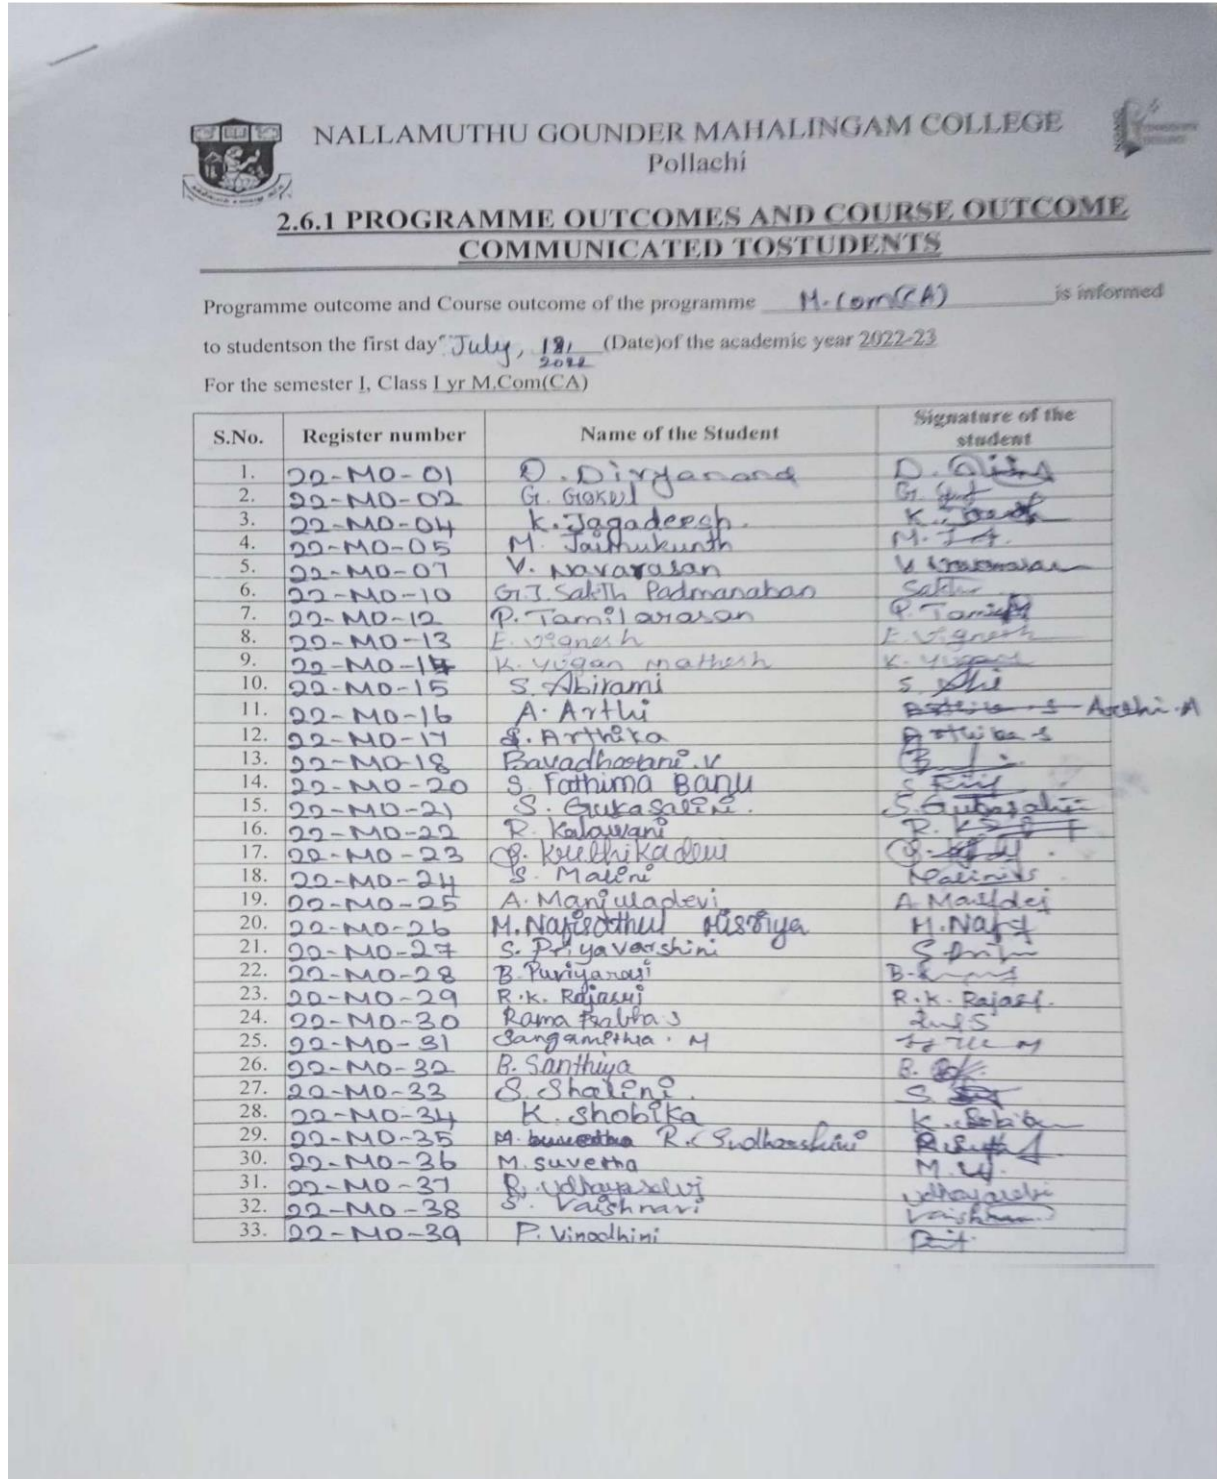 NALLAMUTHU GOUNDER MAHALINGAM COLLEGE
Pollachi
2.6.1 PROGRAMME OUTCOMES AND COURSE OUTCOME
COMMUNICATED TOSTUDENTS
Programme outcome and Course outcome of the programme M.Com(CA) is informed
to studentson the first day July, 18, 2022 (Date)of the academic year 2022-23
For the semester I, Class I yr M.Com(CA)
S.No. Register number Name of the Student Signature of the student
1. 22-MO-01 D. Divyanand D.
2. 22-MO-02 G. Gokul G.
3. 22-MO-04 K. Jagadeesh. K.
4. 22-MO-05 M. Jaimukunth M.
5. 22-MO-07 V. Navarasan V
6. 22-MO-10 G.J. Sakth Padmanaban
7. 22-MO-12 P. Tamilarasan P.
8. 22-MO-13 E. Vignesh E. Vignesh
9. 22-MO-14 K. Yugan Mathesh K.
10. 22-MO-15 S. Abirami S.
11. 22-MO-16 A. Arthi Arthi.A
12. 22-MO-17 S. Arthika Arthika S
13. 22-MO-18 Bavadharani.V
14. 22-MO-20 S. Fathima Banu S
15. 22-MO-21 S. Gukasalini. S.
16. 22-MO-22 R. Kalaivani R.
17. 22-MO-23 G. Kruthikadevi
18. 22-MO-24 S. Malini Malini.S
19. 22-MO-25 A. Manjuladevi A
20. 22-MO-26 M. Nafisathul Misriya M.
21. 22-MO-27 S. Priyavarshini S
22. 22-MO-28 B. Puviyarasi B.
23. 22-MO-29 R.K. Rajasri R.K. Rajasri.
24. 22-MO-30 Rama Prabha S
25. 22-MO-31 Sangamithra. M
26. 22-MO-32 B. Santhiya B.
27. 22-MO-33 S. Shalini. S
28. 22-MO-34 K. Shobika K.
29. 22-MO-35 R. Sudharshini
30. 22-MO-36 M. Suvetha M.
31. 22-MO-37 R. Udhayaselvi
32. 22-MO-38 S. Vaishnavi
33. 22-MO-39 P. Vinodhini